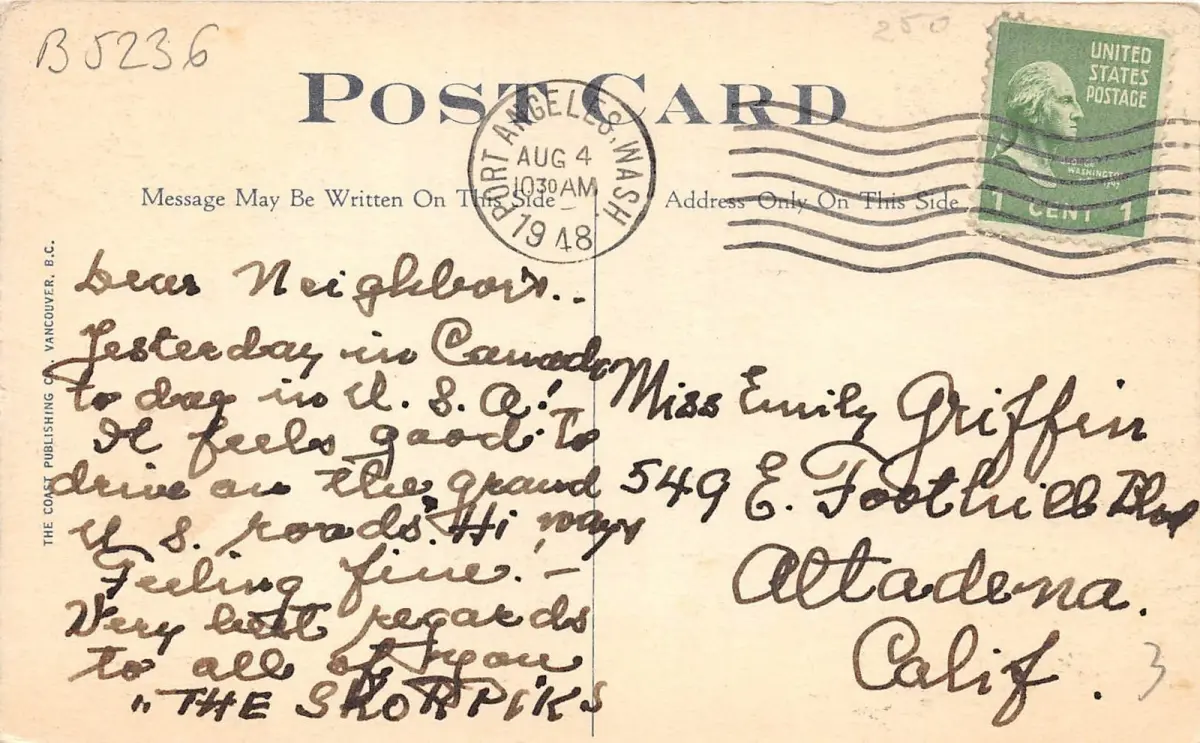 B5236
250
POST CARD
UNITED
STATES
POSTAGE
WASHINGTON
1 CENT 1
PORT ANGELES, WASH.
AUG 4
10 30 AM
1948
Message May Be Written On This Side
Address Only On This Side
THE COAST PUBLISHING CO. VANCOUVER, B.C.
Dear Neighbors..
Yesterday in Canada
to day in U. S. A!
It feels good to
drive on the grand
U S. roads. Hi ways
Feeling fine. —
Very best regards
to all of you
"THE SKORPIKS
Miss Emily Griffin
549 E. Foothill Blvd
Altadena.
Calif.
3